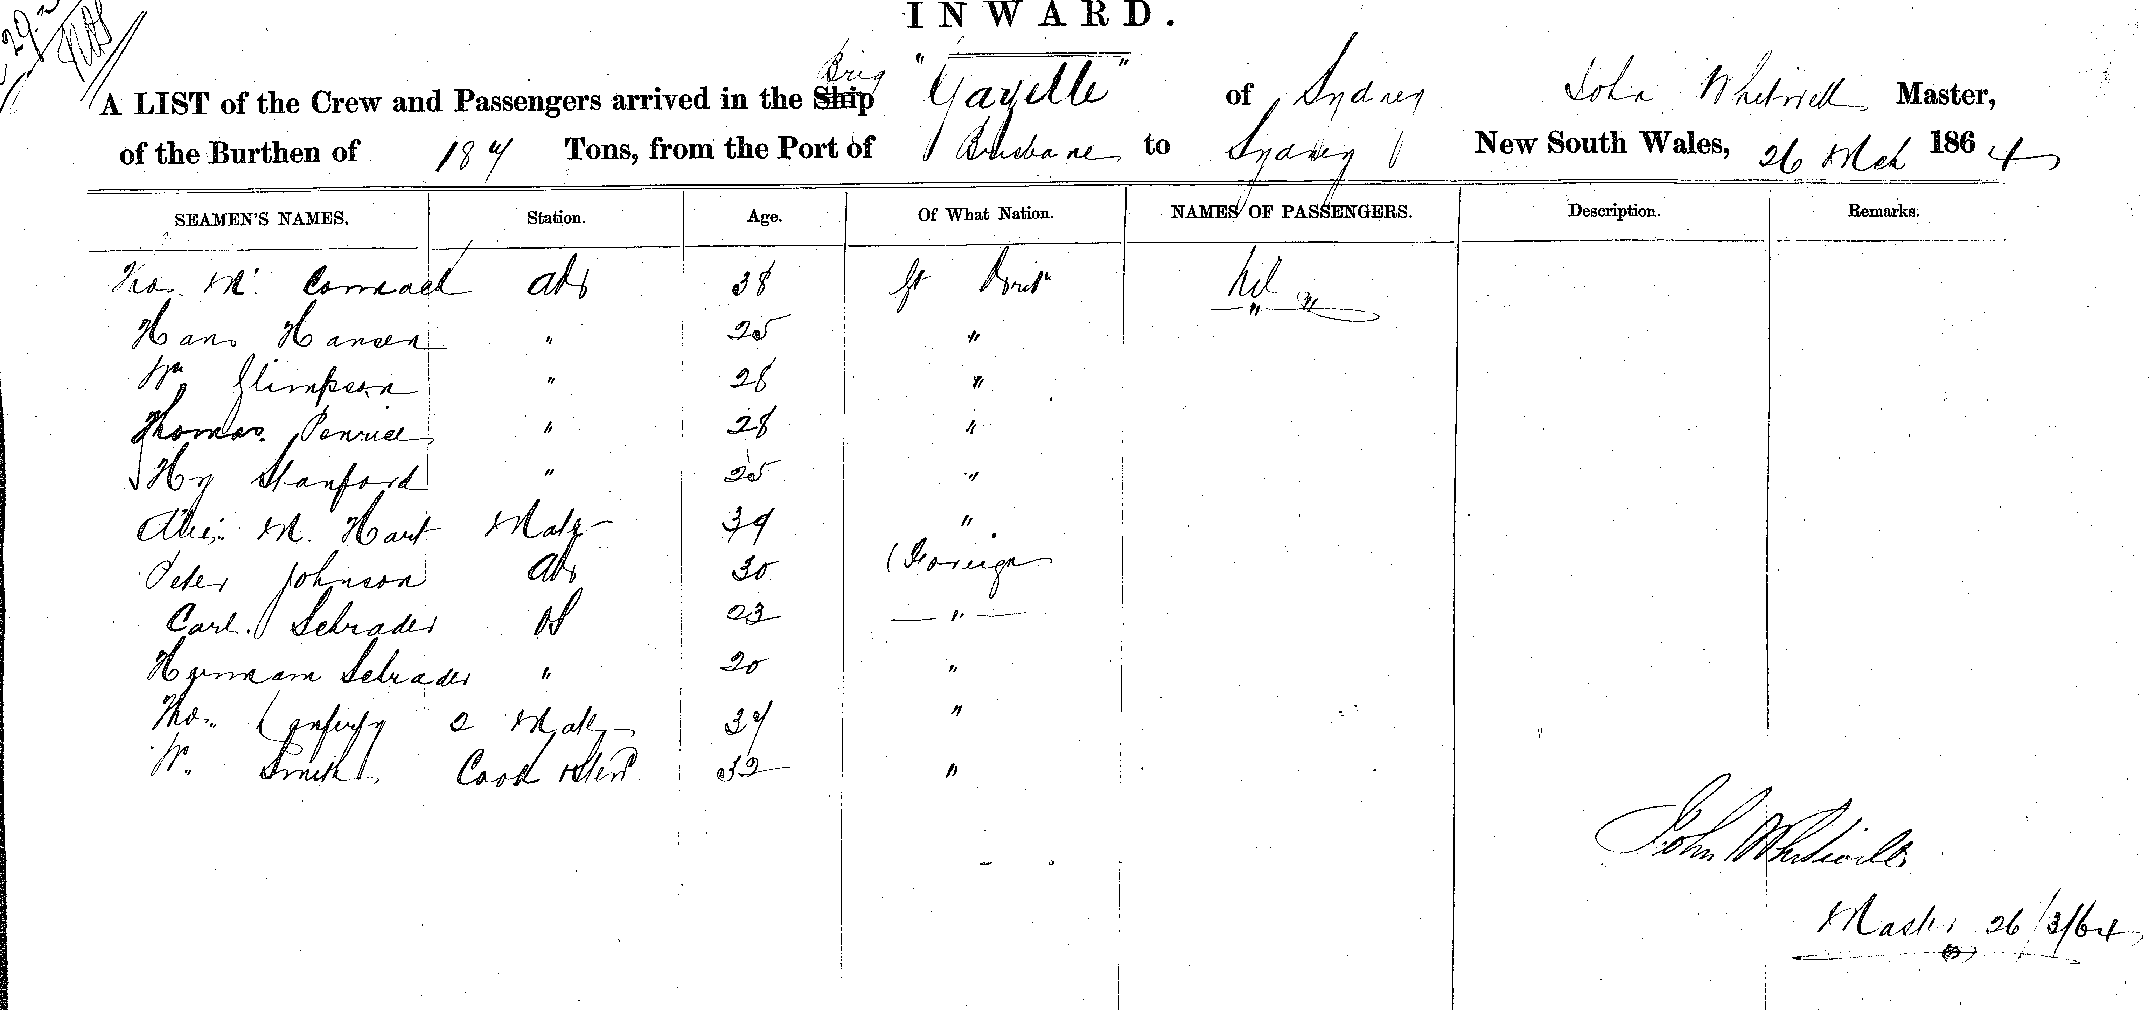 INWARD.
A LIST of the Crew and Passengers arrived in the Ship Brig "Gazelle" of Sydney John Whitwell Master,
of the Burthen of 187 Tons, from the Port of Brisbane to Sydney New South Wales, 26 Mch 1864
SEAMEN'S NAMES. Station. Age. Of What Nation. NAMES OF PASSENGERS. Description. Remarks.
Thos. Mc Cormack abs 38 Gt Brit Nil
Hans Hansen " 25 "
Wm Glimpson " 28 "
Thomas Penrice " 28 "
Hy Stanford " 25 "
M. Hart Mate 39 "
Peter Johnson abs 30 Foreign
Carl Schrader OS 23 "
Hermann Schrader " 20 "
Thos. 2 Mate 37 "
W. Smith Cook & Stewd 32 "
John Whitwell
Master 26/3/64